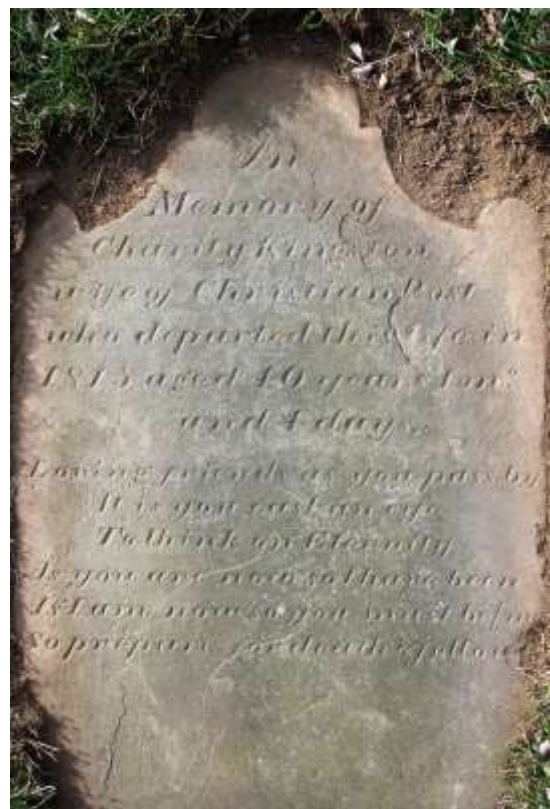 In
Memory of
Charity Kingston
wife of Christian Post
who departed this life in
1815 aged 40 years 1 mo
and 4 days
Loving friends as you pass by
It is you cast an eye
To think on Eternity
As you are now so I have been
As I am now so you must be
So prepare for death & follow